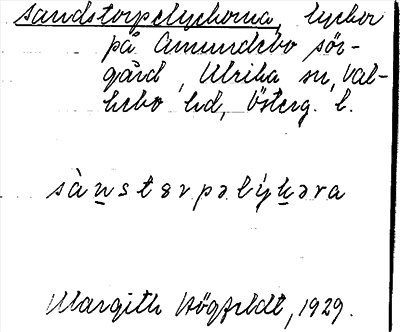 Sandstorpelyckorna, lyckor
på Amundebo sör-
gård, Ulrika sn, Val-
kebo hd, Österg. l.
sànstɵrpəlýkəra
Margith Högfeldt, 1929.